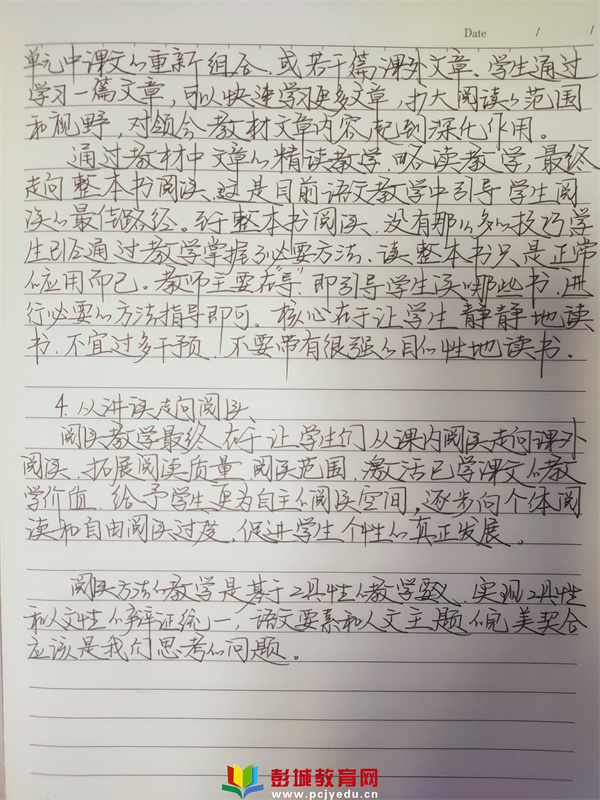 Date / /
单元中课文的重新组合,或若干篇课外文章。学生通过
学习一篇文章,可以快速学习更多文章,扩大阅读的范围
和视野,对领会教材文章内容起到深化作用。
通过教材中文章的精读教学,略读教学,最终
走向整本书阅读,这是目前语文教学中引导学生阅
读的最佳路径。至于整本书阅读,没有那么多的技巧,学
生已经通过教学掌握了必要方法,读整本书只是正常
的应用而已。教师主要在“导”,即引导学生读哪些书,进
行必要的方法指导即可。核心在于让学生静静地读
书,不宜过多干预,不要带有很强的目的性地读书。
4.从讲读走向阅读
阅读教学最终在于让学生们从课内阅读走向课外
阅读,拓展阅读质量,阅读范围,激活已学课文的教
学价值,给予学生更为自主的阅读空间,逐步向个体阅
读和自由阅读过度,促进学生个性的真正发展。
阅读方法的教学是基于工具性的教学要义,实现工具性
和人文性的辩证统一,语文要素和人文主题的完美契合
应该是我们思考的问题。
彭城教育网
www.pcjyedu.cn